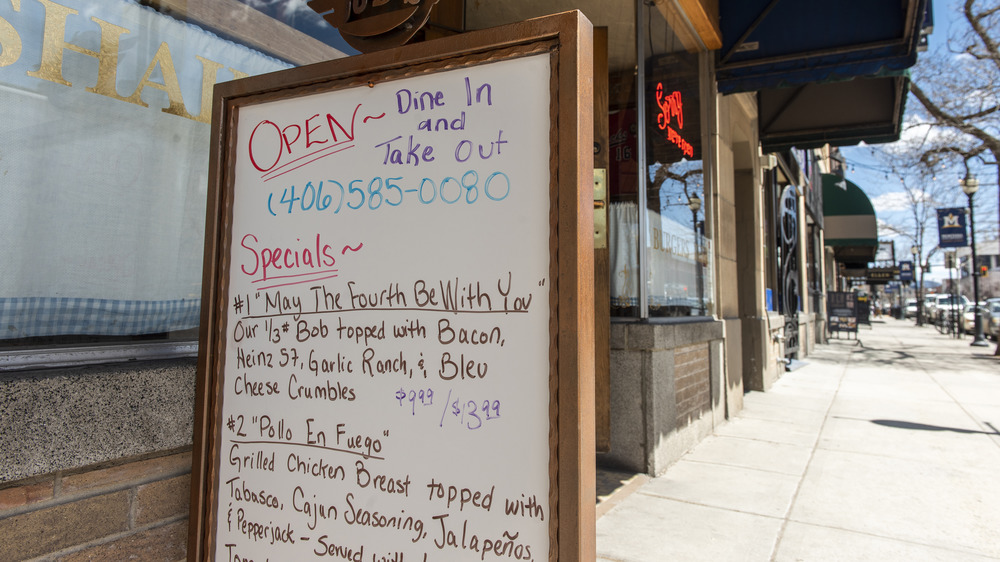 SHA
OPEN~
Dine In
and
Take Out
(406)585-0080
Specials~
#1 "May The Fourth Be With You"
Our 1/3# Bob topped with Bacon,
Heinz 57, Garlic Ranch, & Bleu
Cheese Crumbles $9.99/$13.99
#2 "Pollo En Fuego"
Grilled Chicken Breast topped with
Tabasco, Cajun Seasoning, Jalapeños,
& Pepperjack - Served with
Sorry
we're open
BURGERS